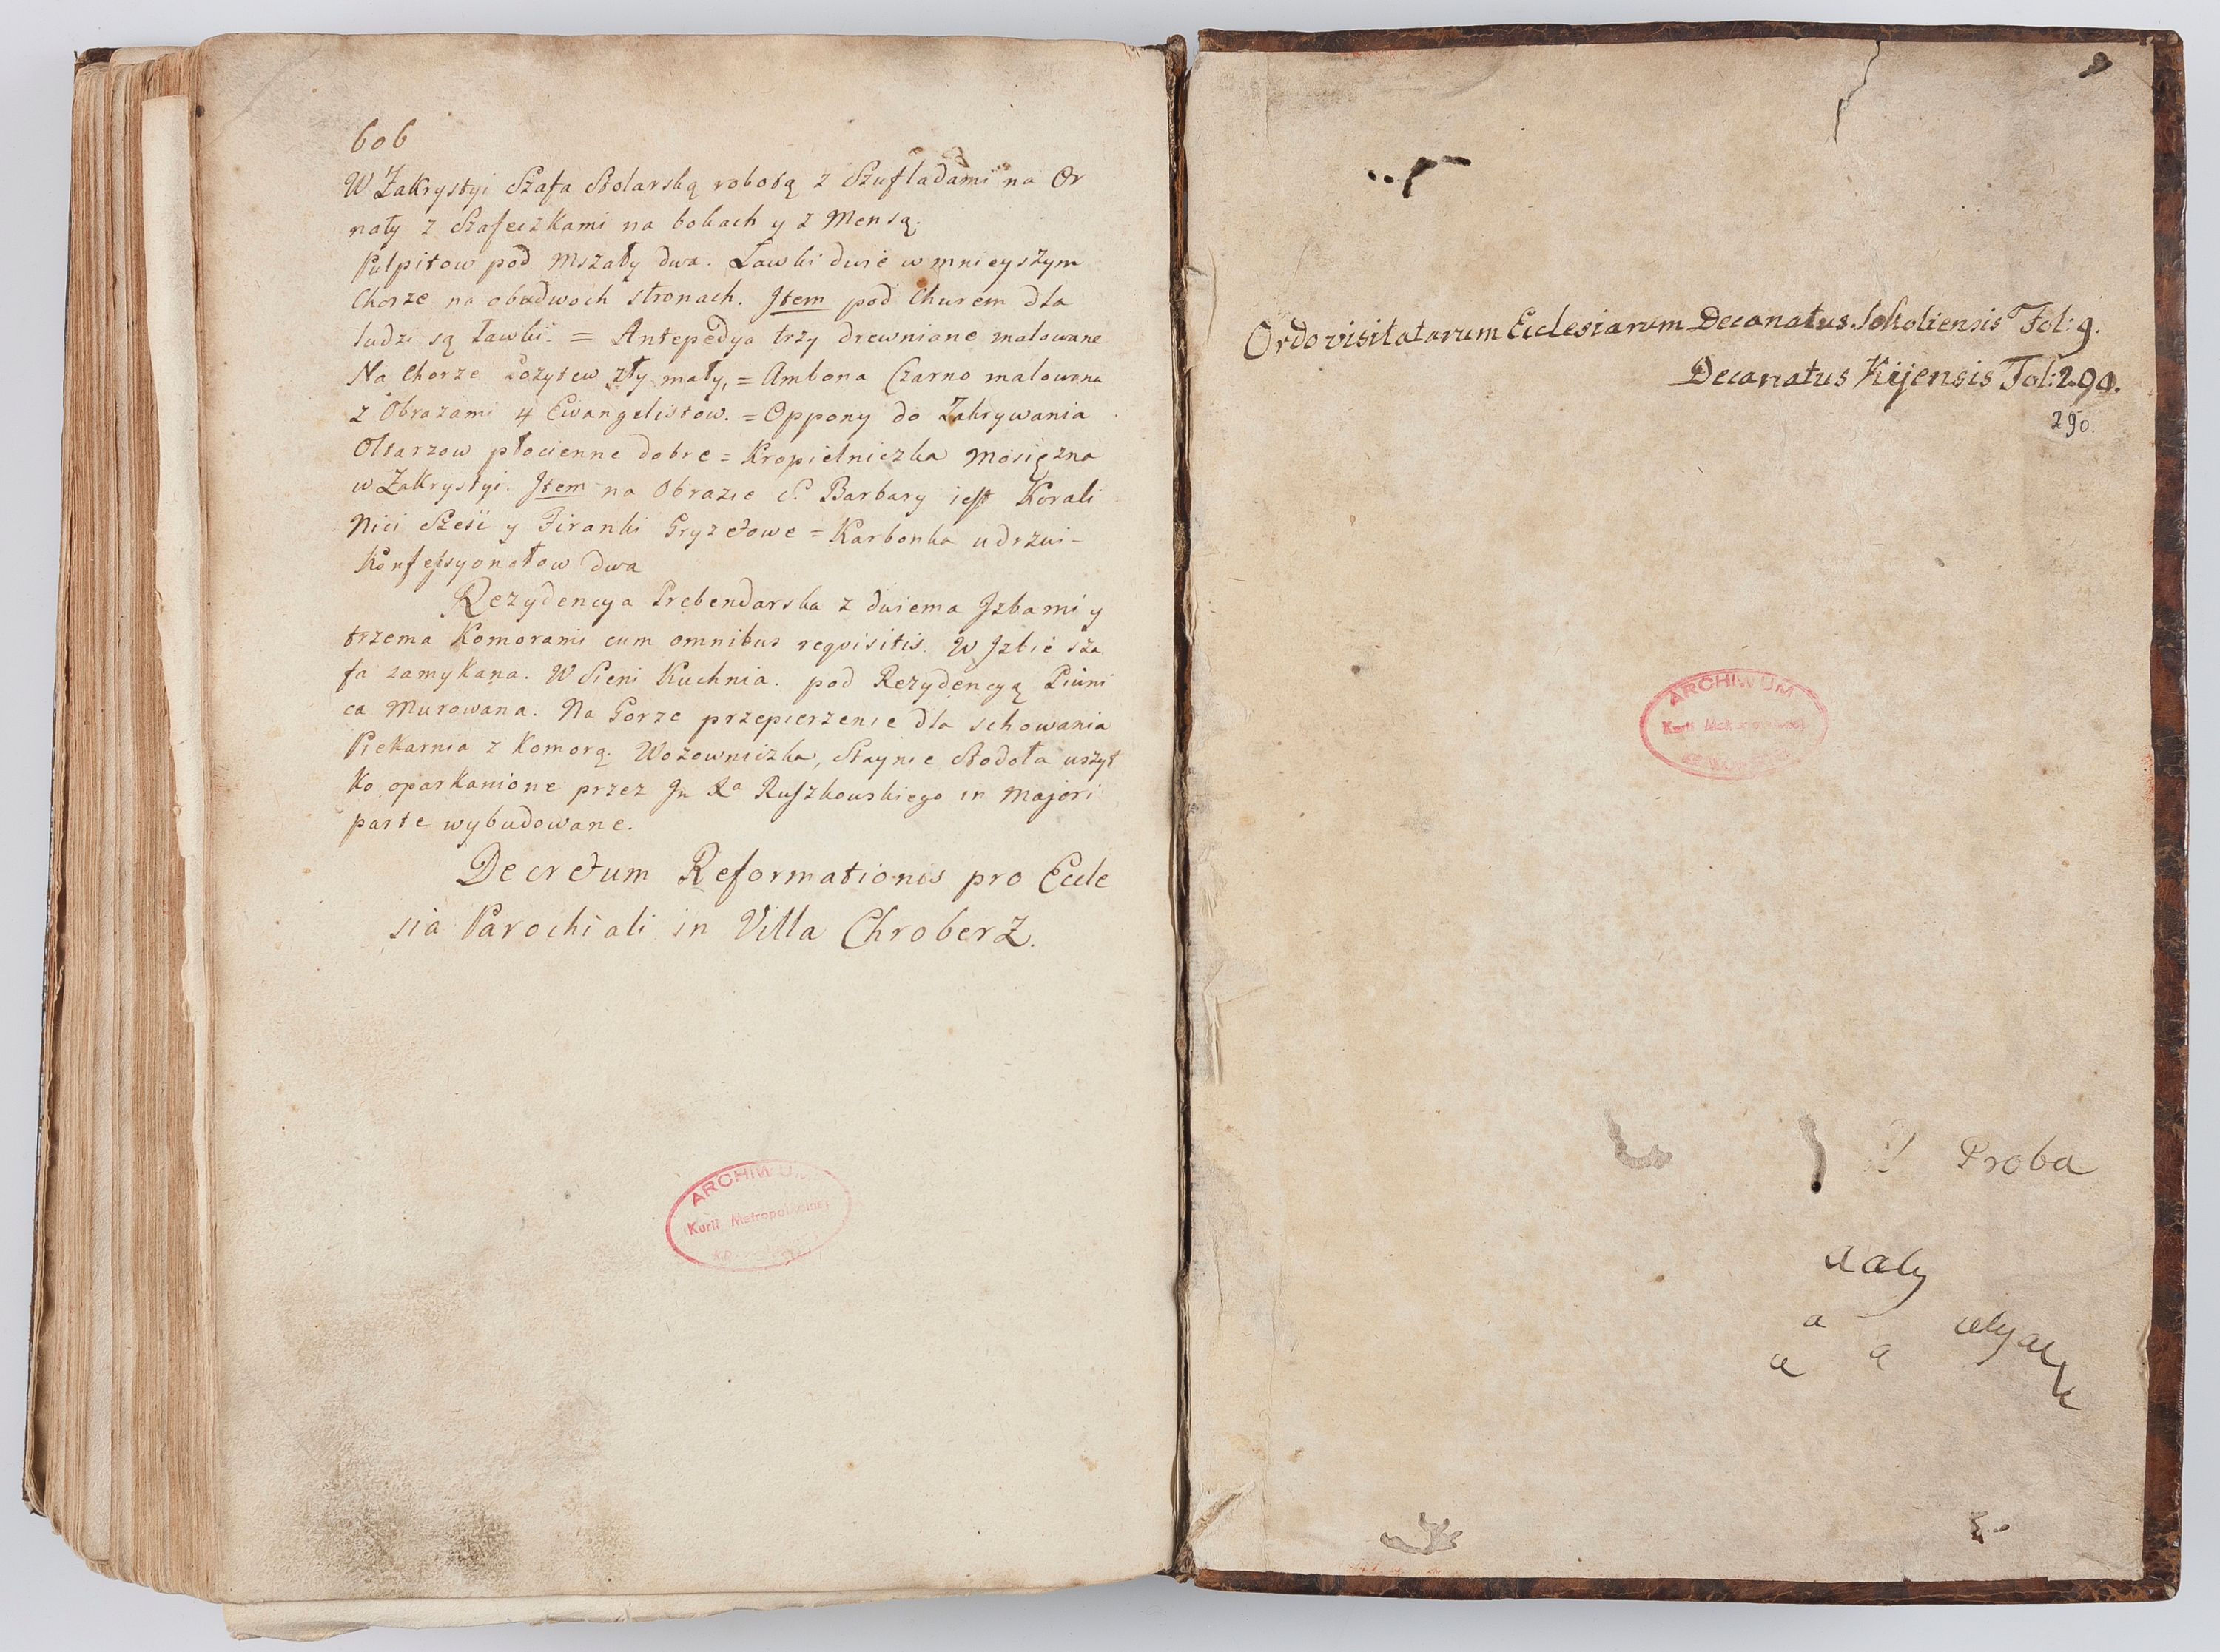 606
W Zakrystyi Szafa Stolarską robotą z Szufladami na Or
naty z Szafeczkami na bokach y z Mensą.
Pulpitow pod Mszały dwa. Ławki dwie w mnieyszym
Chorze na obudwoch stronach. Jtem pod Churem dla
ludzi są ławki. = Antepedya trzy drewniane malowane
Na Chorze Pozytew zły mały, = Ambona Czarno malowana
z Obrazami 4 Ewangelistow. = Oppony do Zakrywania
Oltarzow płocienne dobre = Kropielniczka Mosiężna
w Zakrystyi. Jtem na Obrazie S. Barbary iest Korali
Nici Sześć y Firanki Gryzetowe = Karbonka u drzwi -
Konfessyonałow dwa
Rezydencya Prebendarska z dwiema Jzbami y
trzema Komorami cum omnibus requisitis. W Jzbie sza
fa zamykana. W Sieni Kuchnia. pod Rezydencyą Piwni
ca Murowana. Na Gorze przepierzenie dla schowania
Piekarnia z Komorą. Wozowniczka, Staynie Stodoła wszyt
ko oparkanione przez Ruszkowskiego in Majori
parte wybudowane.
Decretum Reformationis pro Eccle
sia Parochiali in Villa Chroberz.
ARCHIWUM
Kurii Metropolitalnej
Ordo visitatarum Ecclesiarum Decanatus Sokoliensis Fol: 9.
Decanatus Kijensis Fol: 290.
290.
ARCHIWUM
Kurii Metropolitalnej
Proba
a
a a